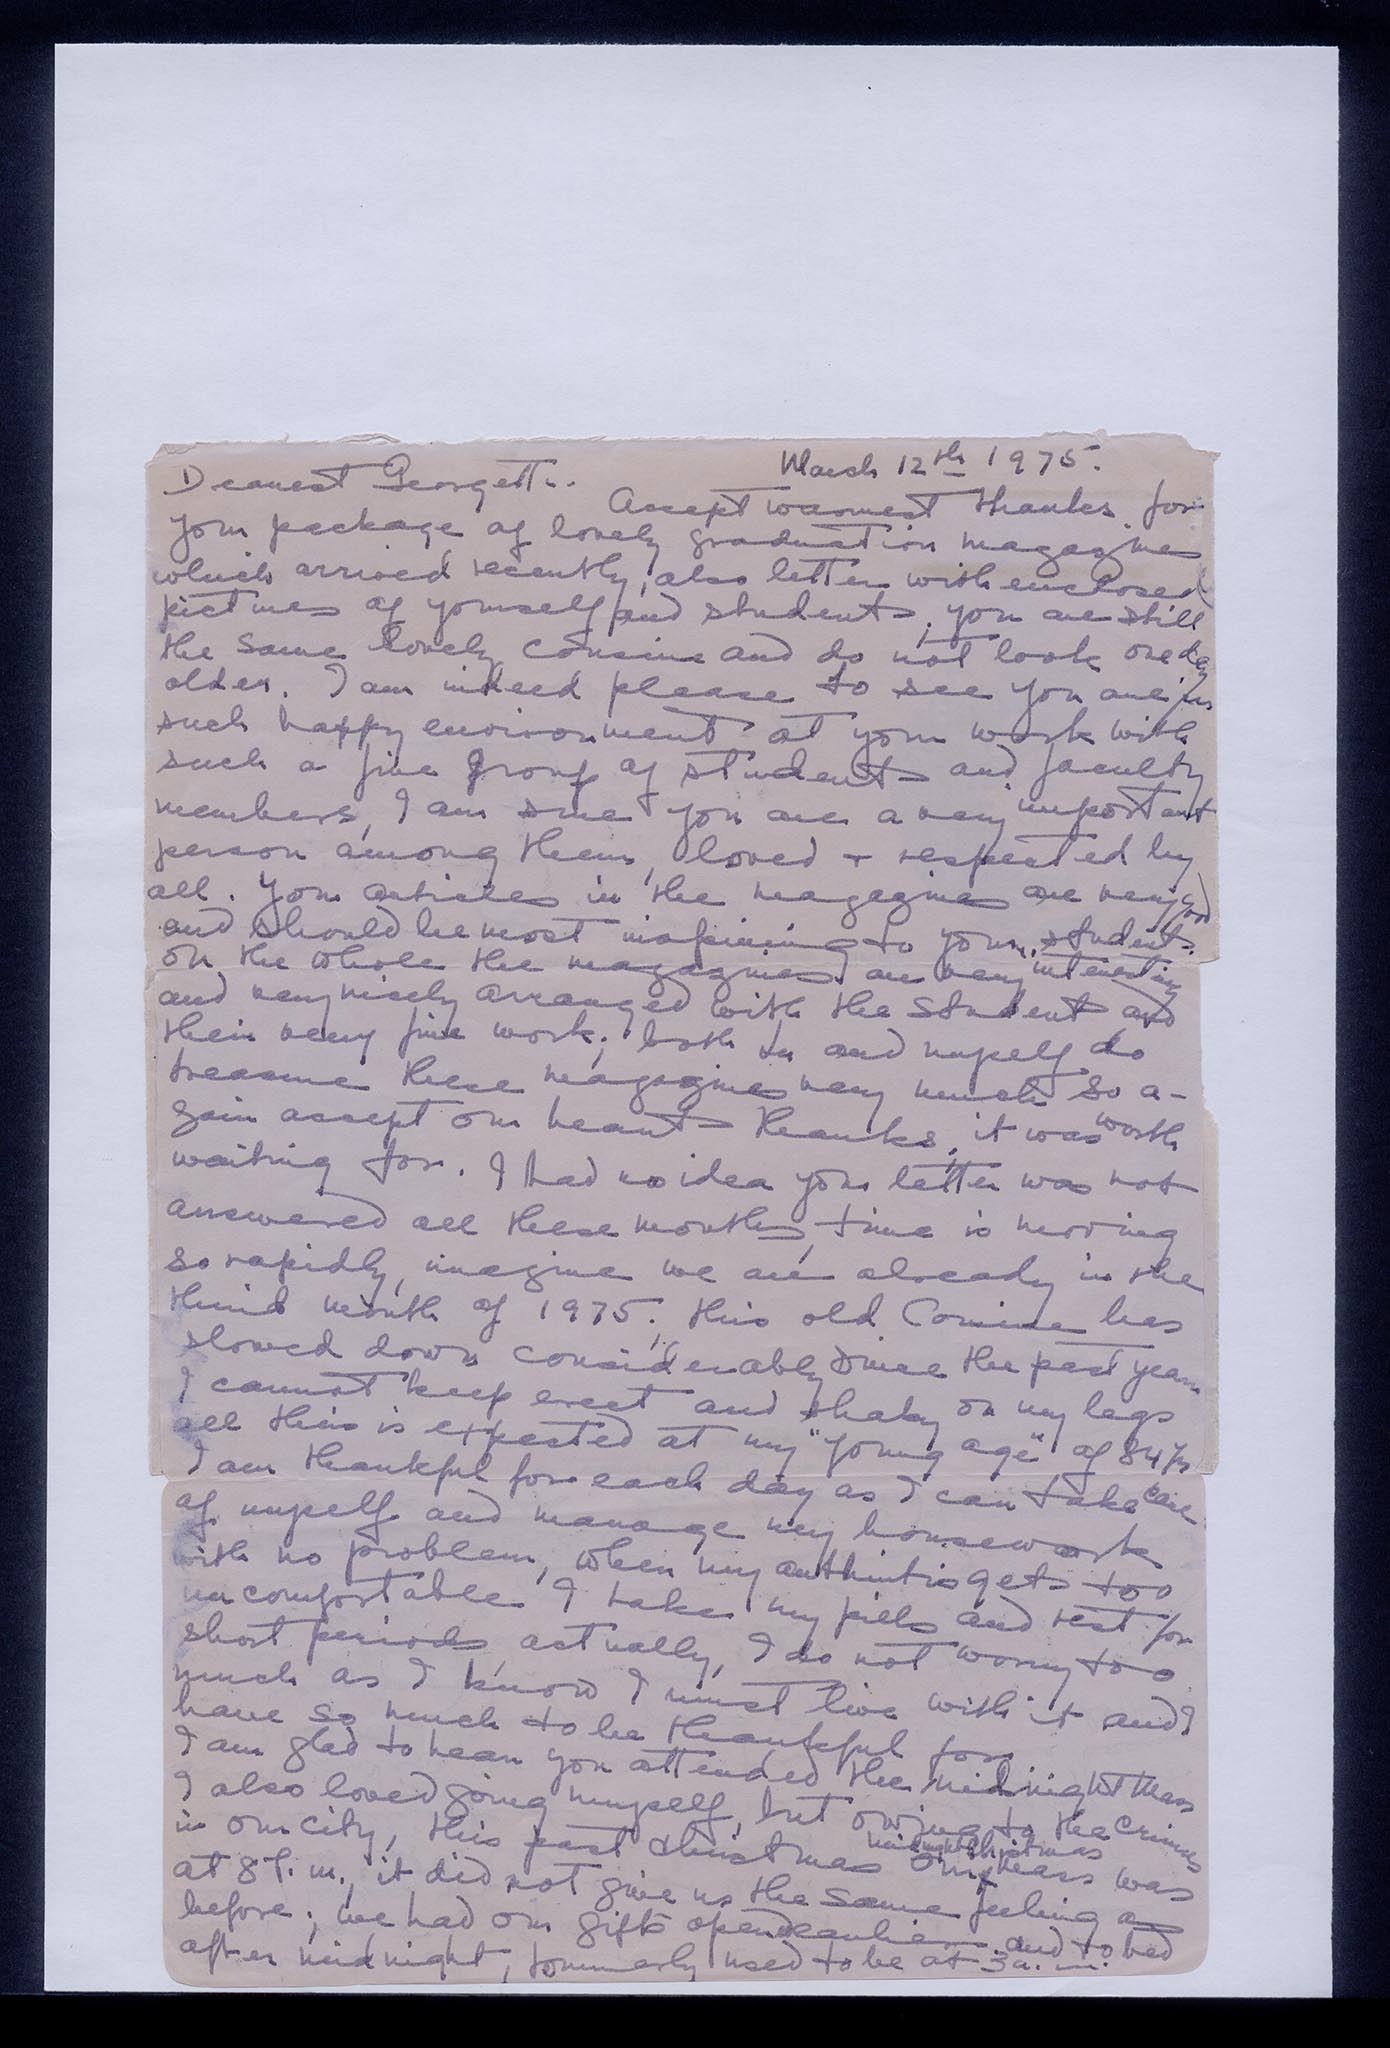 March 12th 1975.
Dearest Georgette.
Accept warmest thanks for
your package of lovely graduation magazine
which arrived recently, also letter with enclosed
pictures of yourself and students, you are still
the same lovely cousine and do not look one day
older. I am indeed please to see you are in
such happy environment at your work with
such a fine group of students and faculty
members, I am sure you are a very important
person among them, loved + respected by
all. Your articles in the magazines are very good
and should be most inspiring to your students.
on the whole the magazines are very interesting
and very nicely arranged with the student and
their very fine work; both and myself do
treasure these magazines very much so a-
gain accept our heart thanks, it was worth
waiting for. I had no idea your letter was not
answered all these months, time is moving
so rapidly, imagine we are already in the
third month of 1975; this old Cousine has
slowed down considerably since the past year
I cannot keep erect and shaky on my legs
all this is expected at my "young age" of 84 yrs
I am thankful for each day as I can take care
of myself and manage my housework
with no problem, when my arthritis gets too
uncomfortable I take my pills and rest for
short periods, actually, I do not worry too
much as I know I must live with it and I
have so much to be thankful for.
I am glad to hear you attended the midnight Mass
I also loved going myself, but owing to the crimes
in our city, this past Christmas our midnight Christmas mass was
at 8 P.m., it did not give us the same feeling as
before; we had our gifts opened earlier and to bed
after midnight, formerly used to be at 3 a.m.